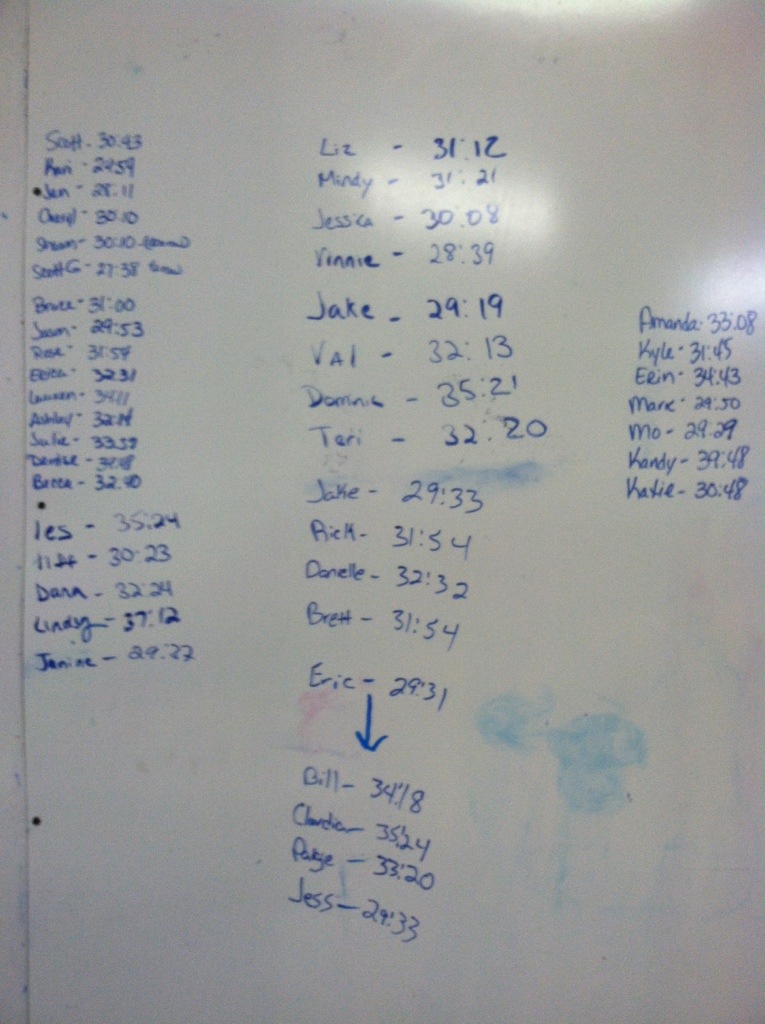 Scott - 30:43
Kari - 29:59
Jen - 28:11
Cheryl - 30:10
Shawn - 30:10
Scott G - 27:38
Bruce - 31:00
Jason - 29:53
Rose - 31:57
Erica - 32:31
Lauren - 34:11
Ashley - 32:14
Julie - 33:59
Denise -
Becca - 32:40
les - 35:24
- 30:23
Dana - 32:24
Lindsy - 37:12
Janine - 29:27
Liz - 31:12
Mindy - 31:21
Jessica - 30:08
Vinnie - 28:39
Jake - 29:19
VAl - 32:13
Dominic - 35:21
Teri - 32:20
Jake - 29:33
Rick - 31:54
Danelle - 32:32
Brett - 31:54
Eric - 29:31
Bill - 34:18
Claudia - 35:24
Paige - 33:20
Jess - 29:33
Amanda - 33:08
Kyle - 31:45
Erin - 34:43
Mark - 29:50
Mo - 29:29
Kandy - 39:48
Katie - 30:48